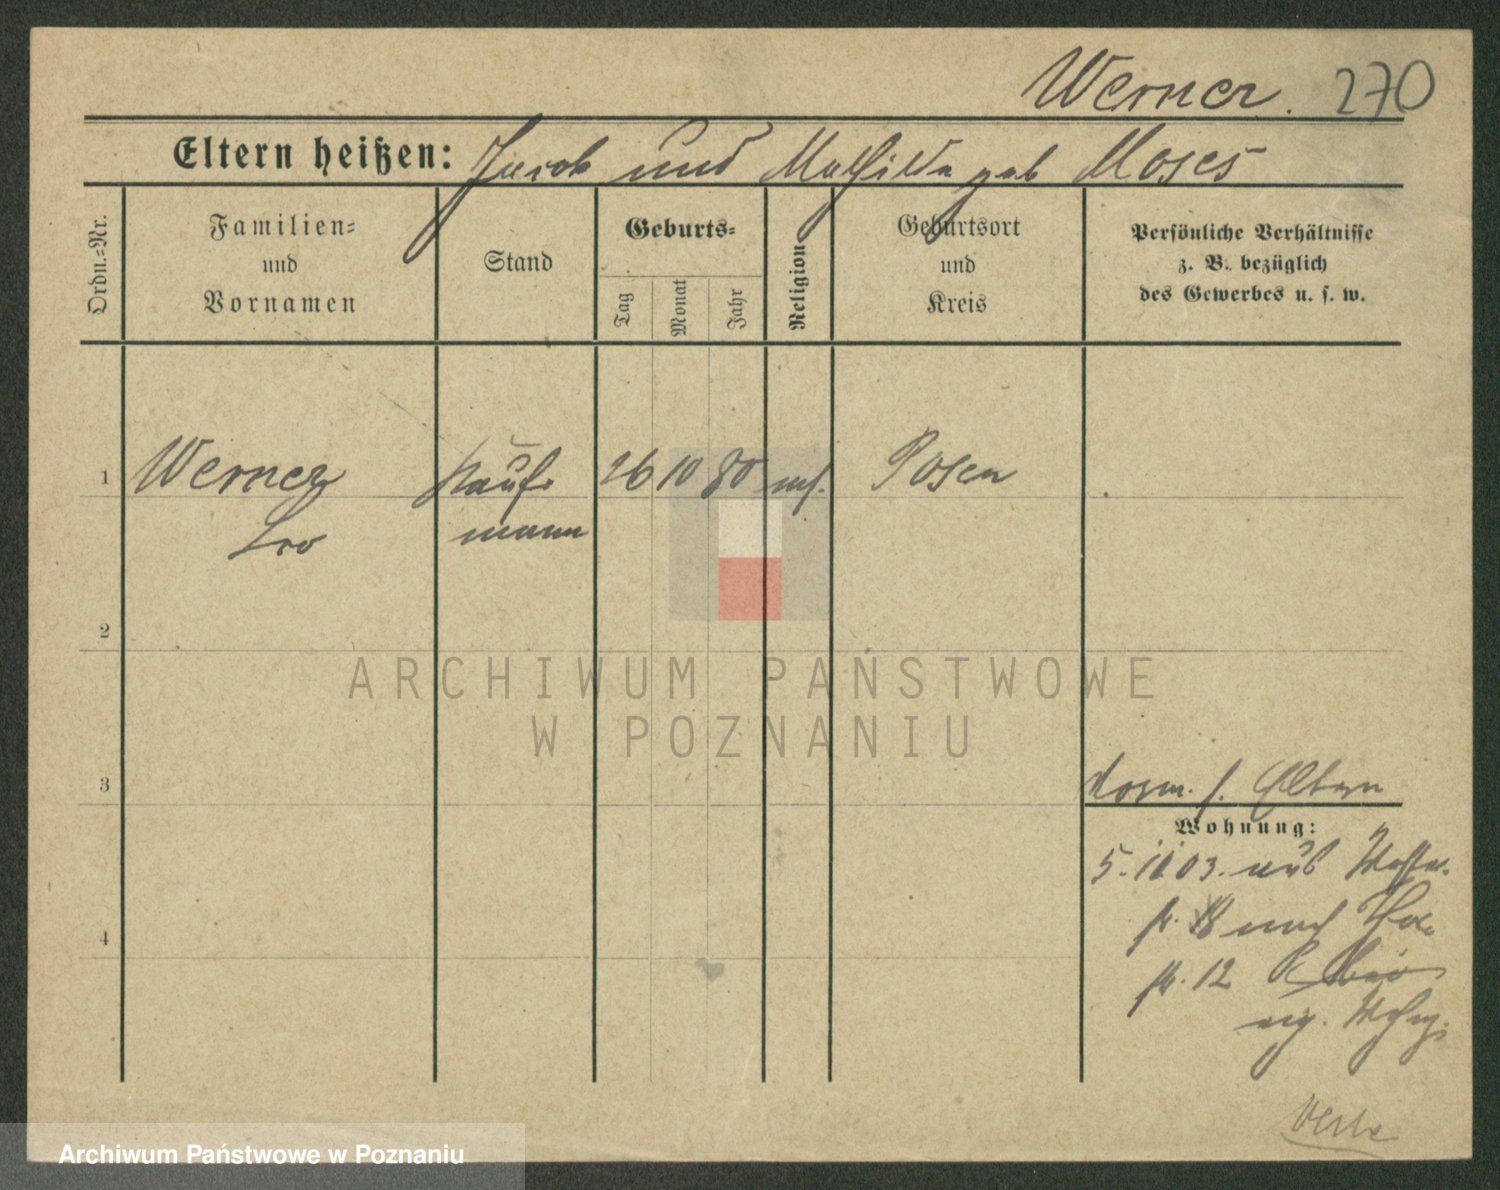 Werner. 270
Eltern heißen: Jacob und Mathilde geb Moses
Ordn.=Nr.
Familien=
und
Vornamen
Stand
Geburts=
Tag
Monat
Jahr
Religion
Geburtsort
und
Kreis
Persönliche Verhältnisse
z. B. bezüglich
des Gewerbes u. s. w.
1 Werner Kauf= 26 10 80 mos. Posen
Leo mann
2
ARCHIWUM PAŃSTWOWE
W POZNANIU
3
Eltern
Wohnung:
5. 11 03. aus
str. 18 nach
4
str. 12
eig.
Archiwum Państwowe w Poznaniu